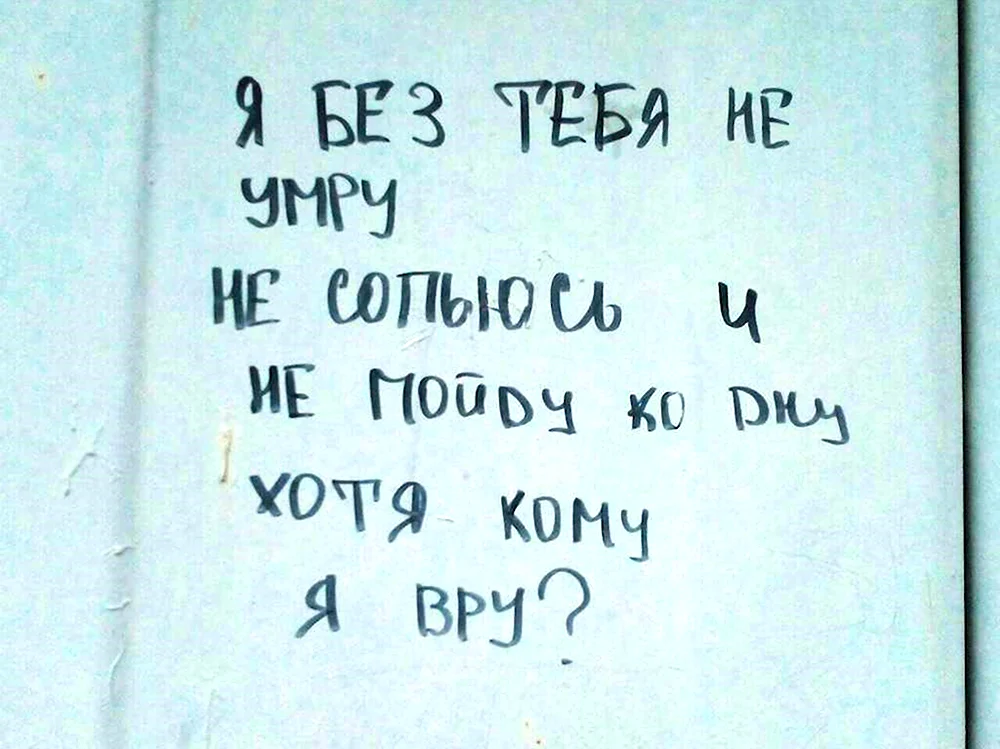 Я БЕЗ ТЕБЯ НЕ
УМРУ
НЕ СОПЬЮСЬ И
НЕ ПОЙДУ КО ДНУ
ХОТЯ КОМУ
Я ВРУ?